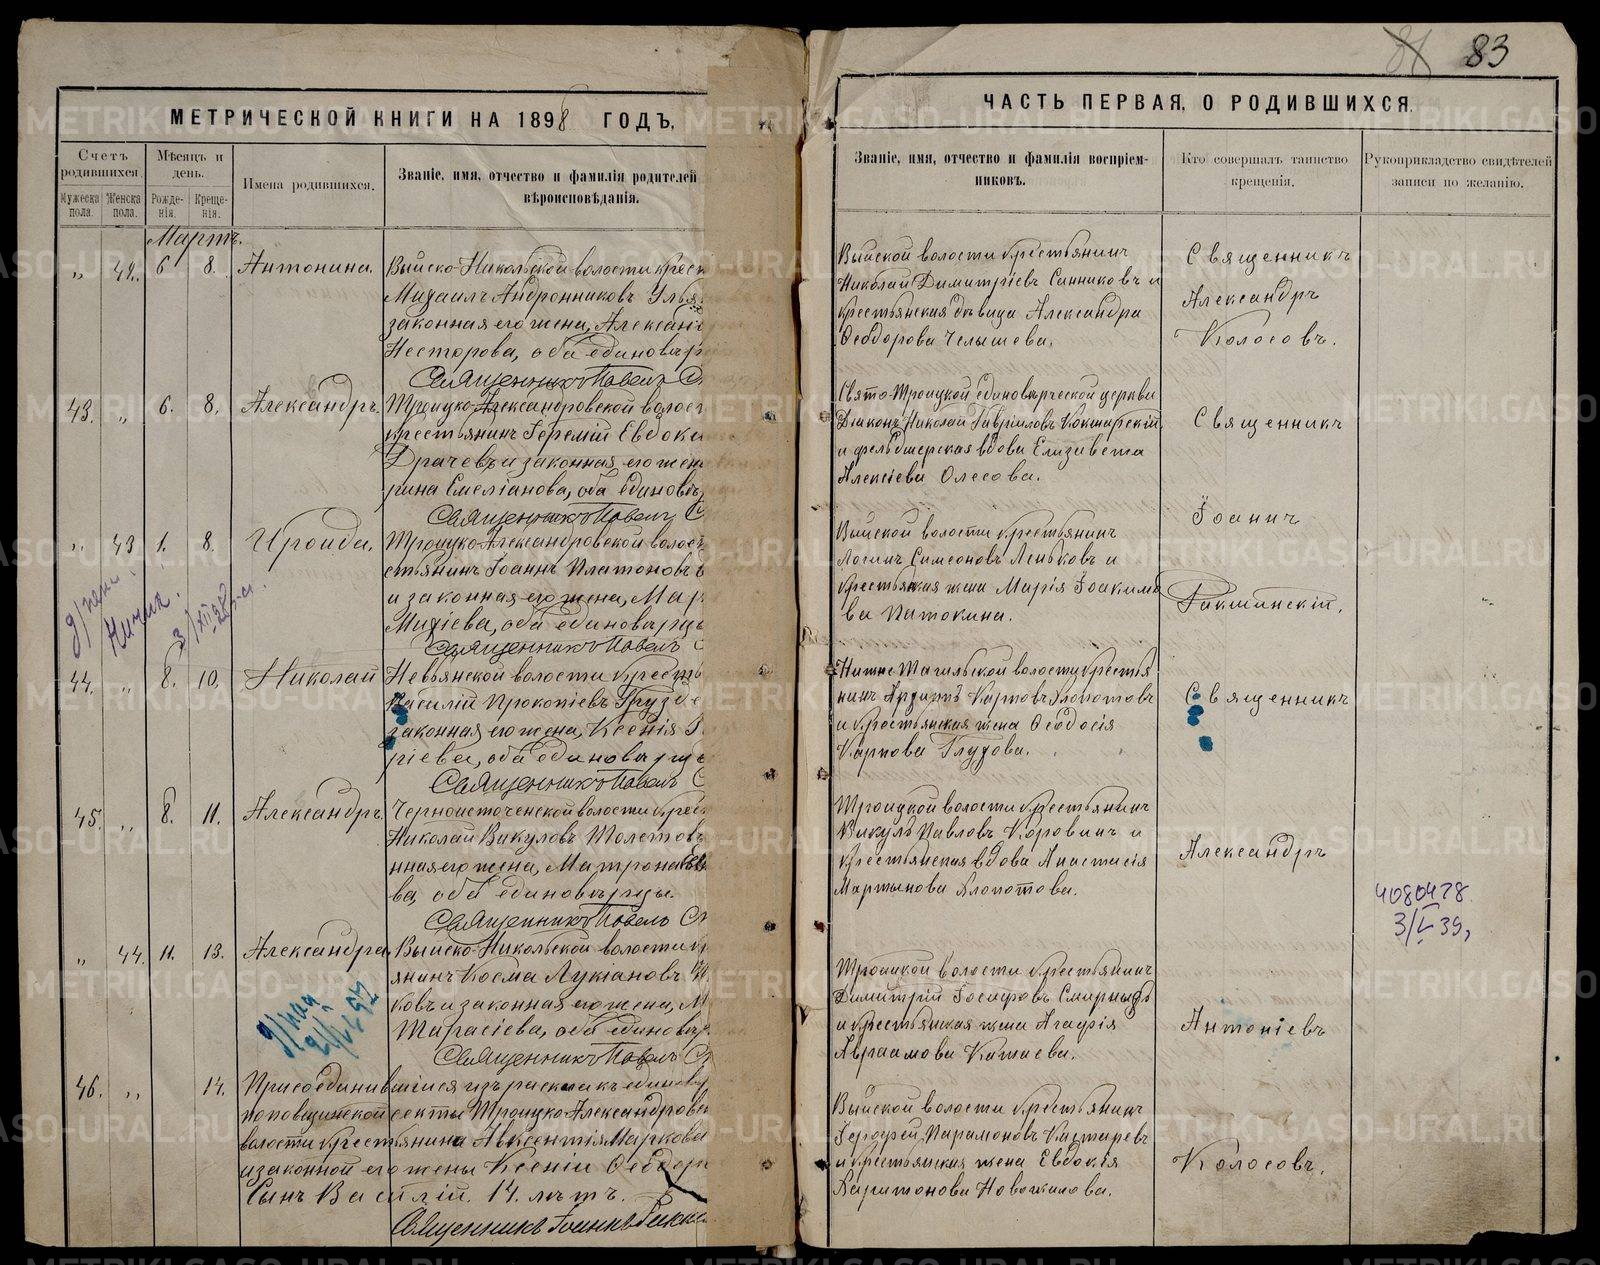 МЕТРИЧЕСКОЙ КНИГИ НА 1898 ГОДЪ,
Счетъ родившихся.
Мѣсяцъ и день.
Имена родившихся.
Званіе, имя, отчество и фамилія родителей
вѣроисповѣданія.
Мужеска пола.
Женска пола.
Рожде-
нія.
Креще-
нія.
Мартъ.
„ 42. 6 8. Антонина.
Выйско-Никольской волости крест
Михаилъ Андронниковъ Улья
законная его жена, Александ
Несторова, оба единовѣр
Священникъ Павелъ С
43. „ 6. 8. Александръ.
Троицко-Александровской волост
крестьянинъ Іеремій Евдоки
Драчевъ и законная его жен
рина Емеліанова, оба единовѣр
Священникъ Павелъ С
„ 43 1. 8. Ироида.
Троицко-Александровской волост
стьянинъ Іоаннъ Платоновъ
и законная его жена, Мар
оба единовѣрцы
Священникъ Павелъ С
44. „ 8. 10. Николай
Невьянской волости крестья
Василій Прокопіевъ Грузде
законная его жена, Ксенія
ріева, оба единовѣрцы
Священникъ Павелъ С
45. „ 8. 11. Александръ.
Черноисточенской волости крес
Николай Викуловъ Толстов
нная его жена, Матрона
ва, оба единовѣрцы.
Священникъ Павелъ С
„ 44. 11. 13. Александра
Выйско-Никольской волости кр
янинъ Косма Лукіановъ
ковъ и законная его жена, М
Тарасіева, оба единовѣр
Священникъ Павелъ С
46. „ 14.
Присоединившійся изъ раскола къ единовѣ
поповщинской секты Троицко-Александровс
волости крестьянина Авксентія Маркова
и законной его жены Ксеніи Ѳеодор
Сынъ Василій. 14. лѣтъ.
Священникъ Іоаннъ Ракши
83
ЧАСТЬ ПЕРВАЯ, О РОДИВШИХСЯ.
Званіе, имя, отчество и фамилія воспріем-
никовъ.
Кто совершалъ таинство
крещенія.
Рукоприкладство свидѣтелей
записи по желанію.
Выйской волости крестьянинъ
Николай Димитріевъ Санниковъ и
крестьянская дѣвица Александра
Ѳеодорова Челышева.
Священникъ
Александръ
Колосовъ.
Свято-Троицкой единовѣрческой церкви
Діаконъ Николай Гавріиловъ Кокшарскій
и фельдшерская вдова Елизавета
Алексіева Олесова.
Священникъ
Іоаннъ
Выйской волости крестьянинъ
Логинъ Симеоновъ Леньковъ и
крестьянская жена Марія Іоакимо
ва Патокина.
Ракшинскій.
Нижне-Тагильской волости крестья
нинъ Карповъ Хлопотовъ
и крестьянская жена Ѳеодосія
Карпова Глухова.
Священникъ
Троицкой волости крестьянинъ
Викулъ Павловъ Коровинъ и
крестьянская вдова Анастасія
Мартынова Хлопотова.
Александръ
4080478
3/V 39,
Троицкой волости крестьянинъ
Димитрій Іосифовъ Смирныхъ
и крестьянская жена Агафія
Авраамова Катаева.
Антоніевъ
Выйской волости крестьянинъ
Іерофей Парамоновъ Кастаревъ
и крестьянская жена Евдокія
Харитонова Новожилова.
Колосовъ.
METRIKI.GASO-URAL.RU